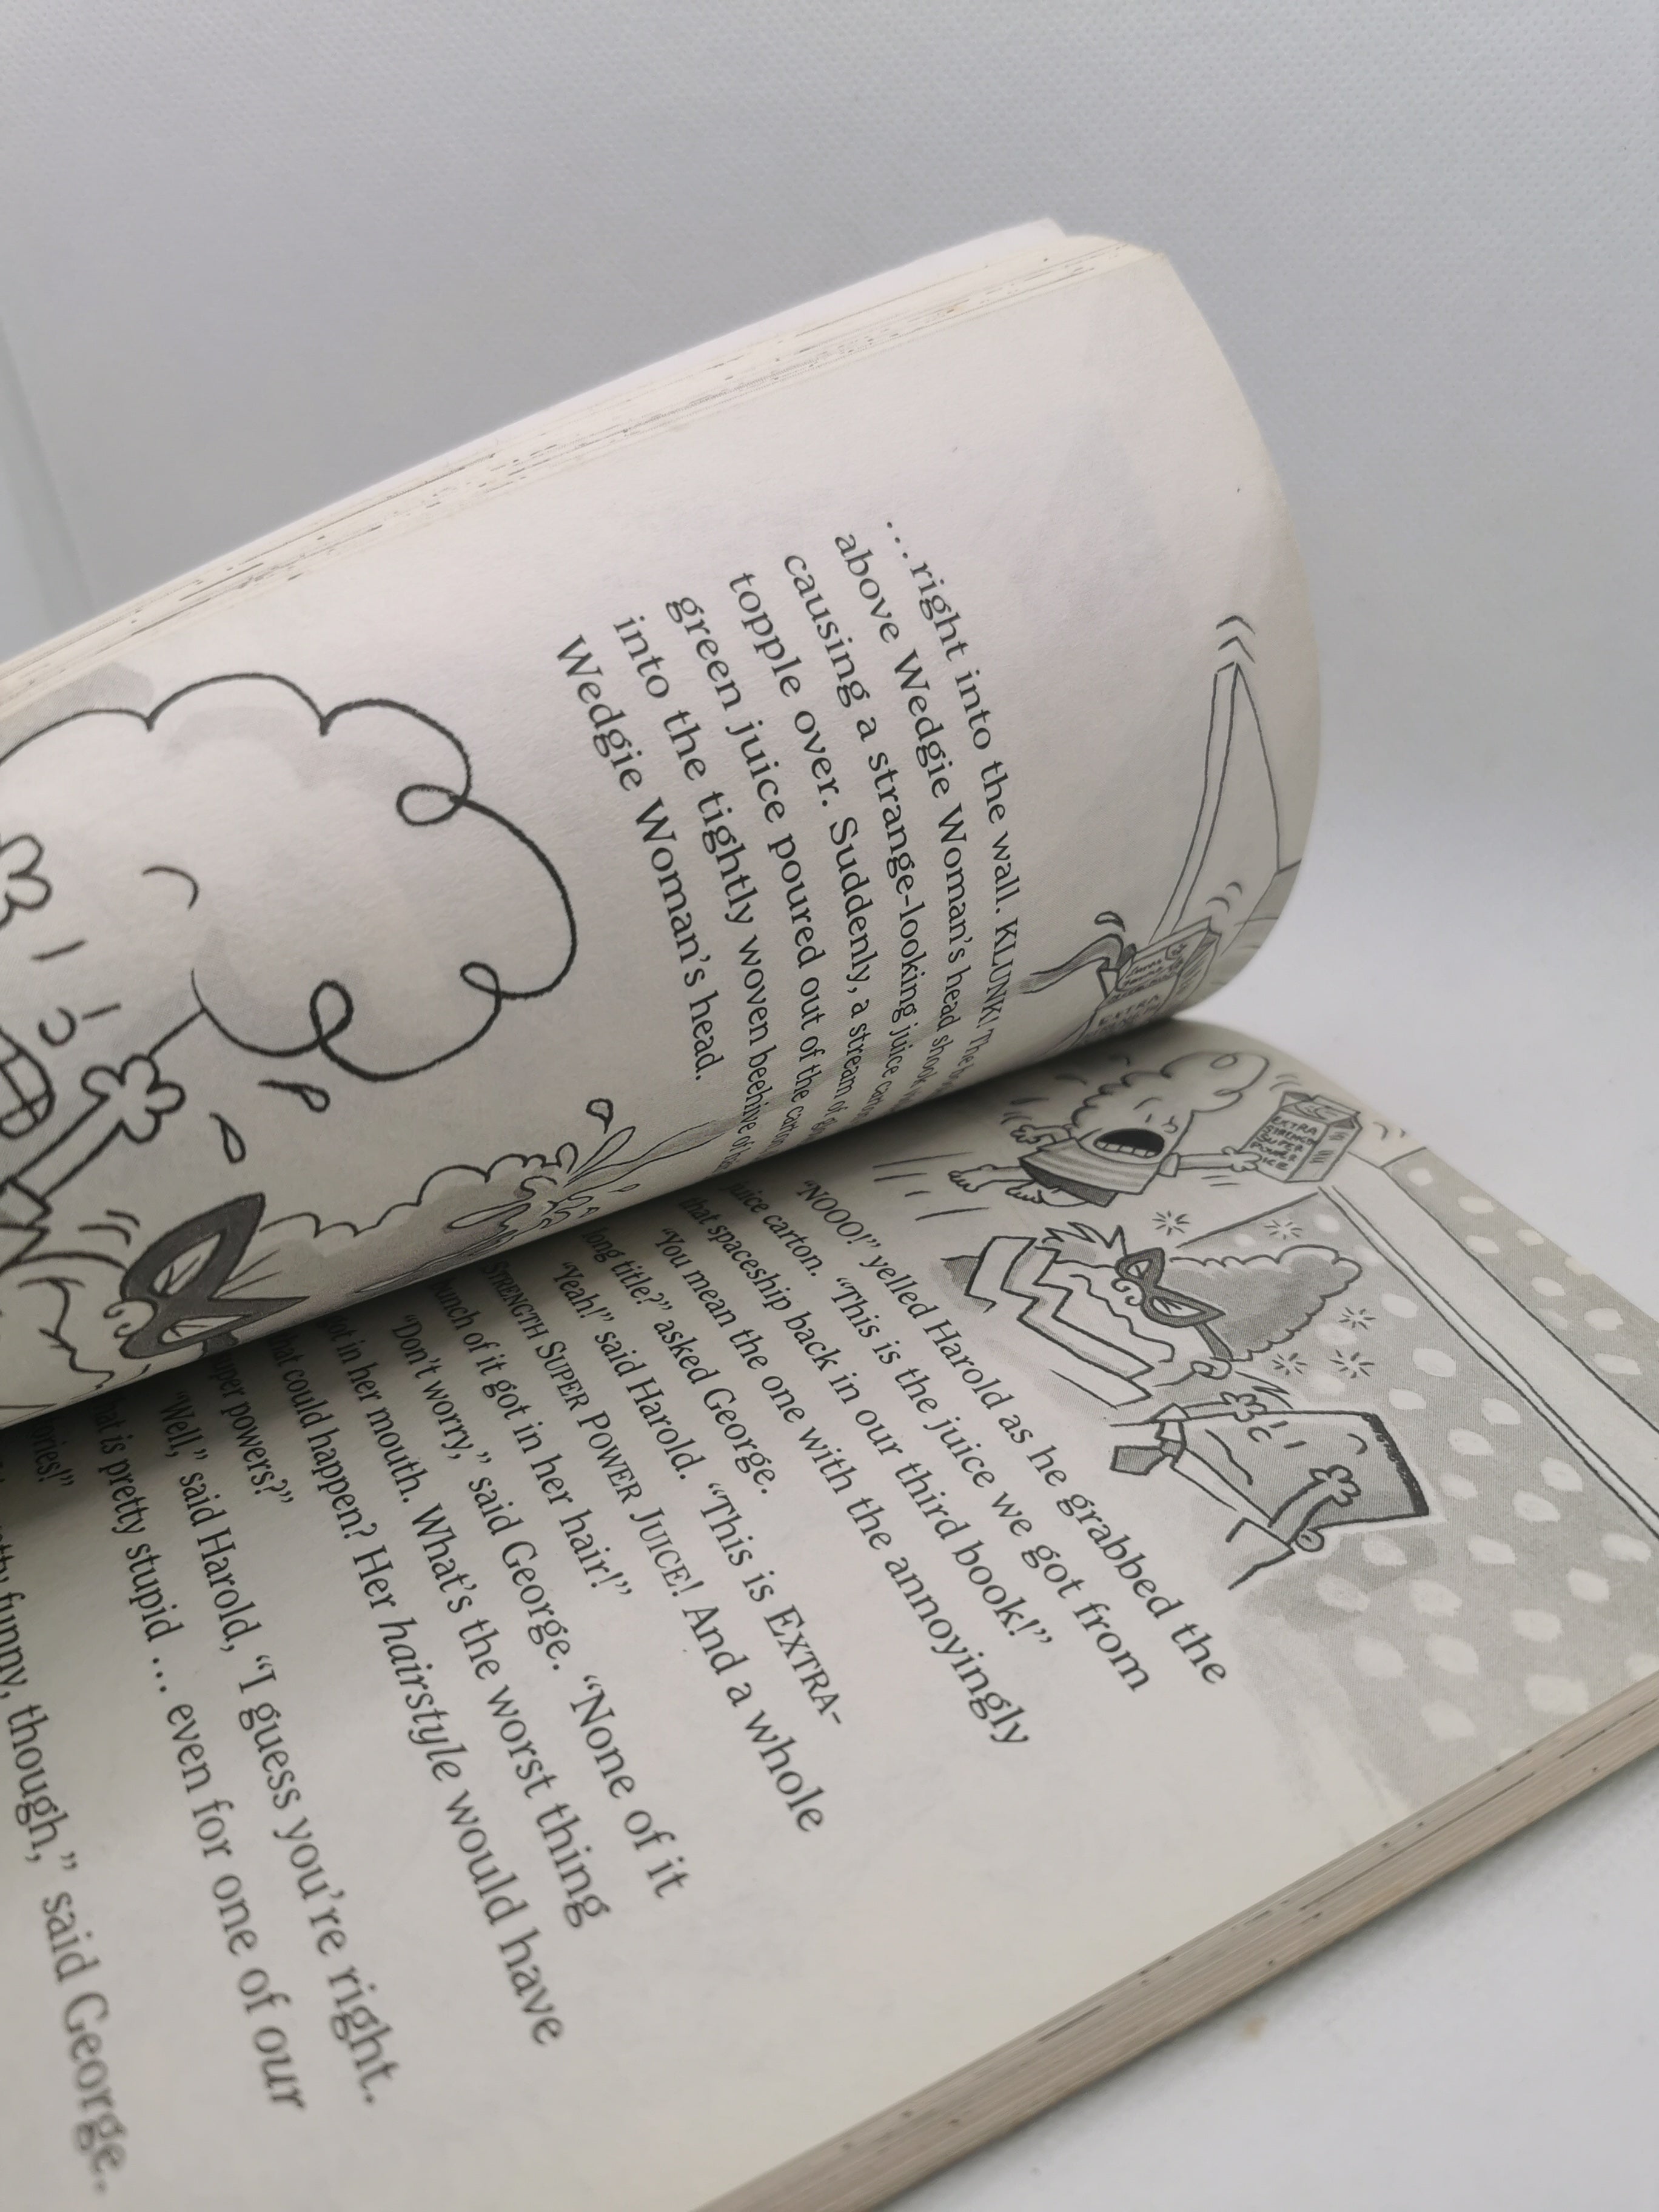 …right into the wall. KLUNK! The
above Wedgie Woman's head shook
causing a strange-looking juice
topple over. Suddenly, a stream of
green juice poured out of the carton
into the tightly woven beehive of
Wedgie Woman's head.
EXTRA
EXTRA
STRENGTH
SUPER
POWER
“NOOO!” yelled Harold as he grabbed the
juice carton. “This is the juice we got from
that spaceship back in our third book!”
“You mean the one with the annoyingly
long title?” asked George.
“Yeah!” said Harold. “This is EXTRA-
STRENGTH SUPER POWER JUICE! And a whole
bunch of it got in her hair!”
“Don't worry,” said George. “None of it
got in her mouth. What's the worst thing
that could happen? Her hairstyle would have
super powers?”
“Well,” said Harold, “I guess you're right.
that is pretty stupid … even for one of our
stories!”
funny, though,” said George.